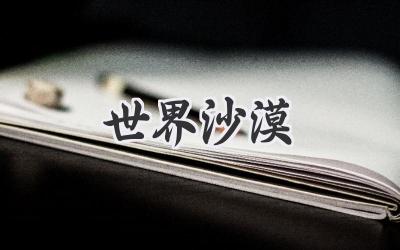 世界沙漠